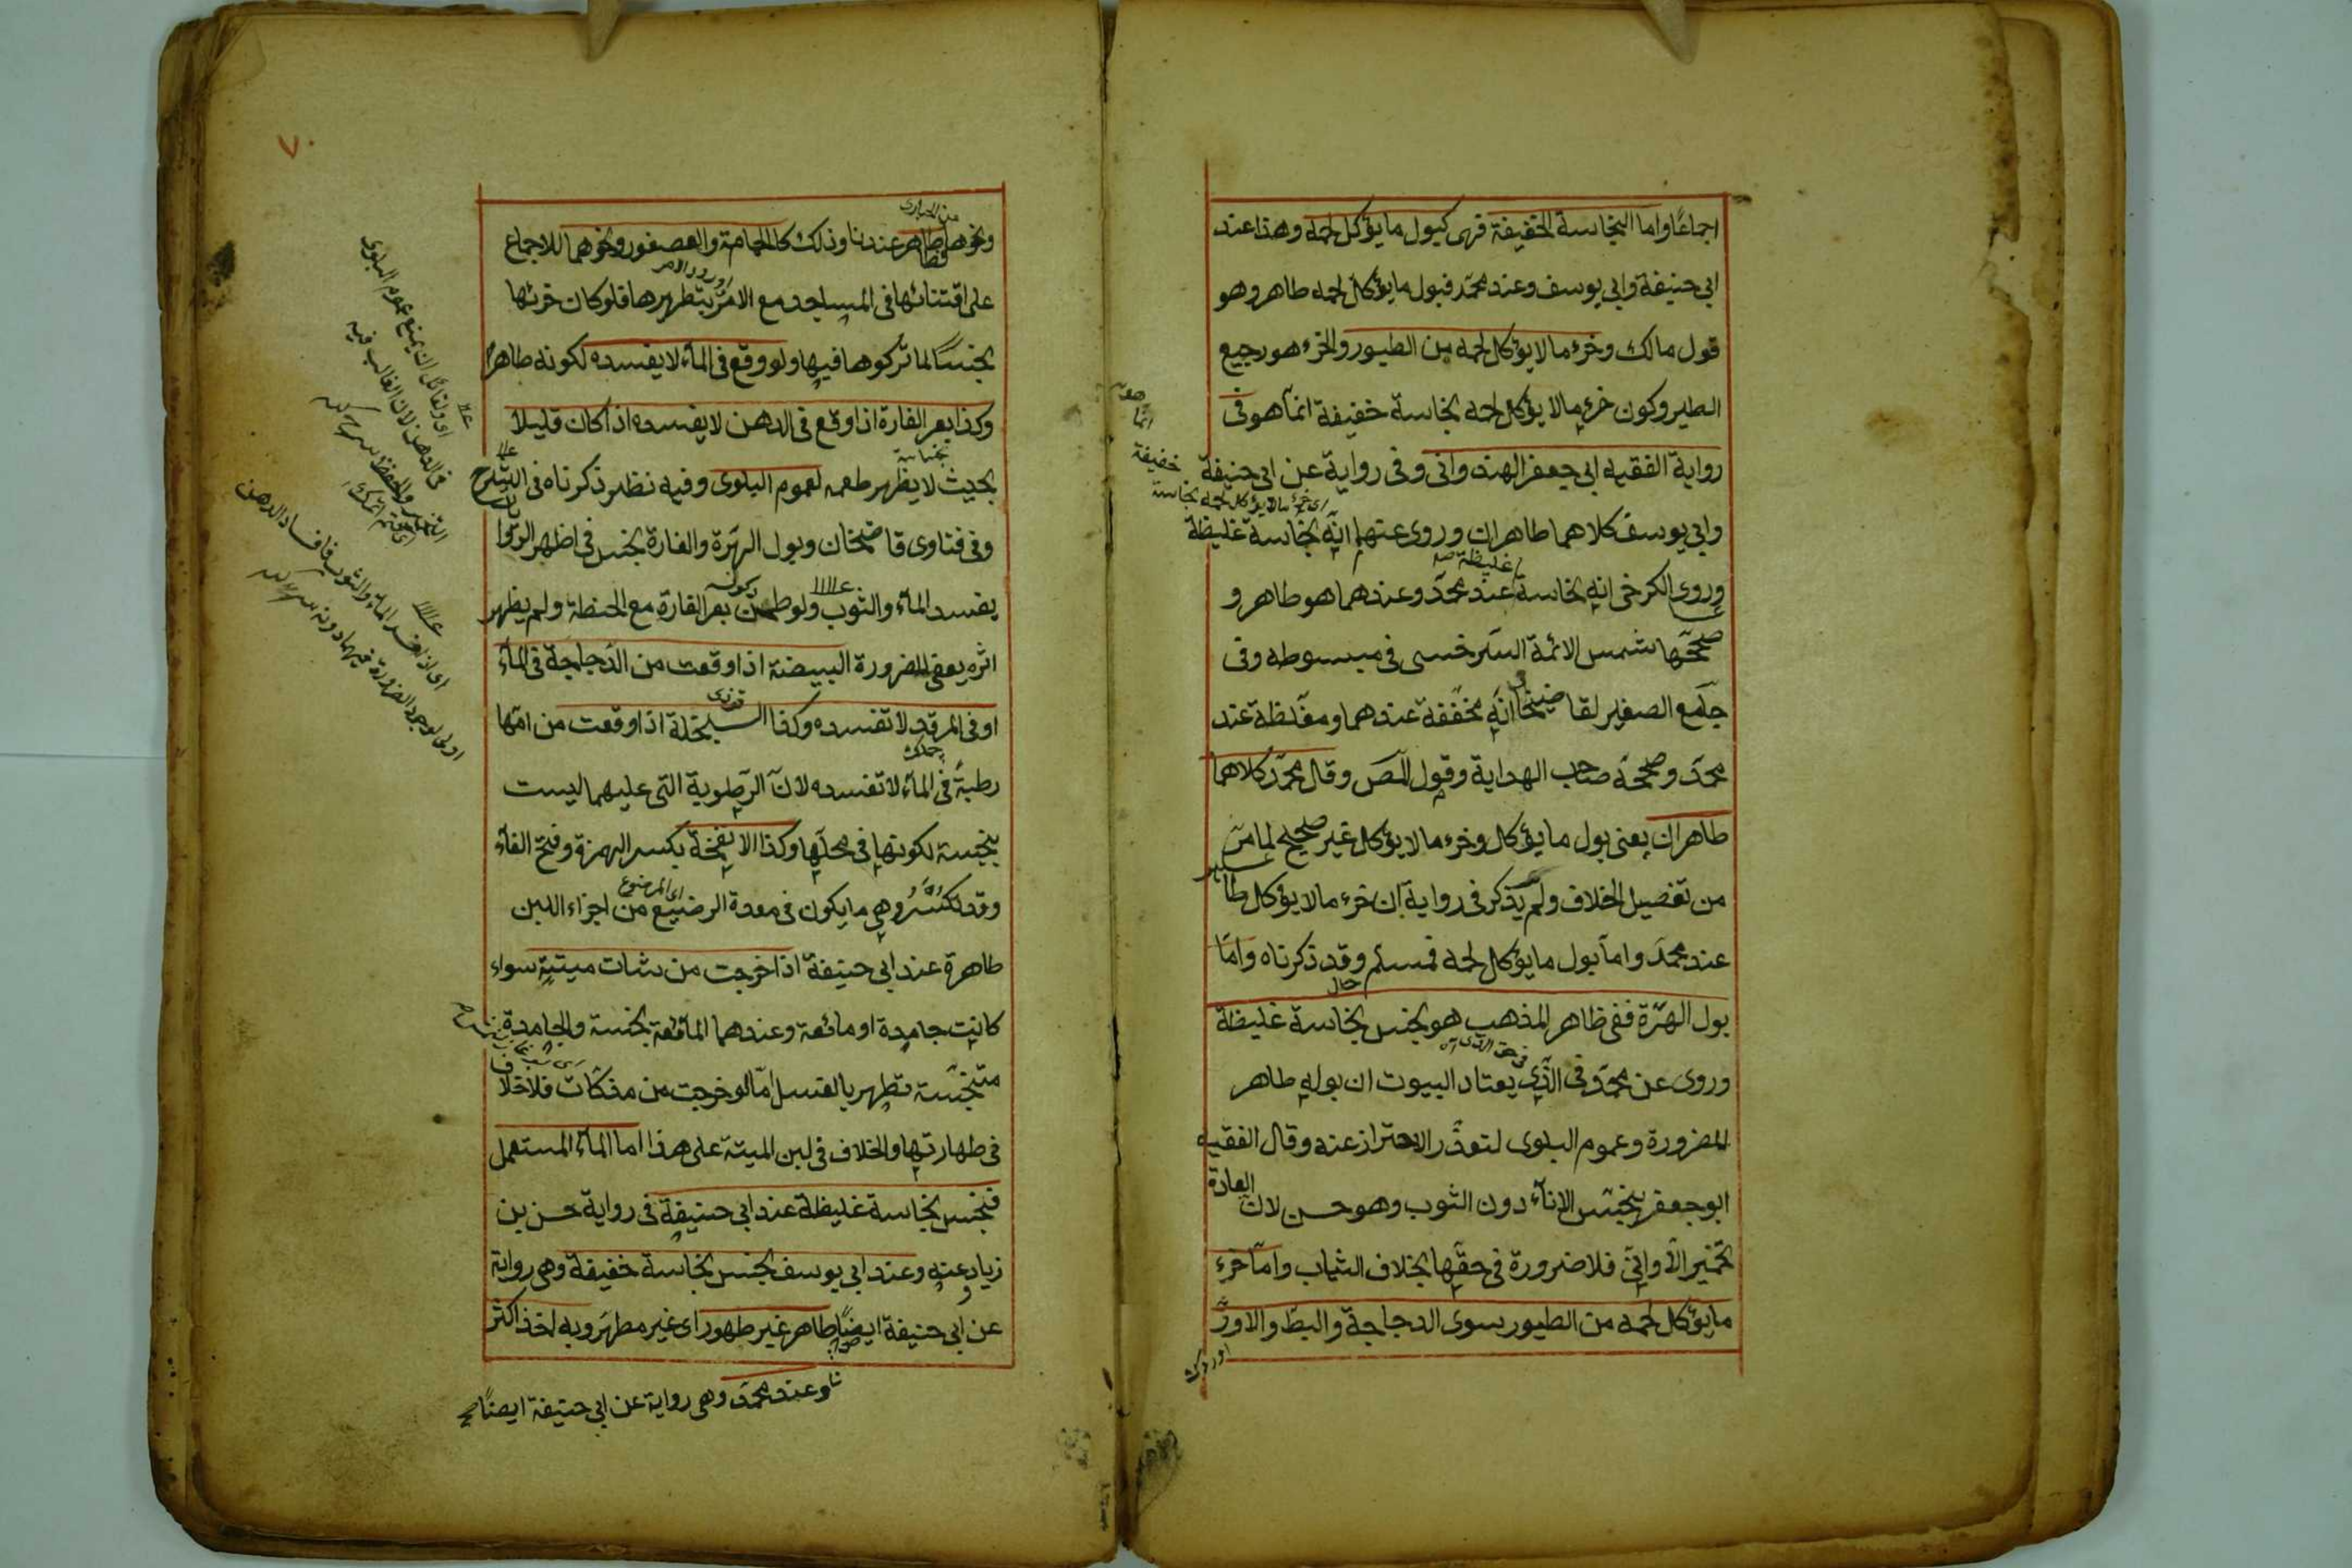 اجماعًا واما النجاسة الخفيفة فهى كبول ما يؤكل لحمه وهذا عند
ابى حنيفة وابى يوسف وعند محمّد فبول ما يؤكل لحمه طاهر وهو
قول مالك وخرء ما لا يؤكل لحمه من الطيور والخرء هو رجيع
الطير وكون خرء ما لا يؤكل لحمه نجاسة خفيفة انمّا هو فى
رواية الفقيه ابى جعفر الهندوانى وفى رواية عن ابى حنيفة
وابى يوسف كلاهما طاهران وروى عنهما انّه نجاسة غليظة
وروى الكرخى انه نجاسة عند محمّد وعندهما هو طاهر و
صححّها شمس الائمة السّرخسى فى مبسوطه وفى
جامع الصغير لقاضيخان انّه مخففّة عندهما ومغلّظة عند
محمّد وصححّه صاحب الهداية وقول المص وقال محمّد كلاهما
طاهران يعنى بول ما يؤكل وخرء ما لا يؤكل غير صحيح لما مرّ
من تفصيل الخلاف ولم يذكر فى رواية ان خرء ما لا يؤكل طاهر
عند محمّد وامّا بول ما يؤكل لحمه فمسلّم وقد ذكرناه وامّا
بول الهرّة ففى ظاهر المذهب هو نجس نجاسة غليظة
وروى عن محمّد فى الّذى يعتاد البيوت ان بوله طاهر
للضرورة وعموم البلوى لتعذّر الاحتراز عنه وقال الفقيه
ابو جعفر ينجّس الانآء دون الثوب وهو حسن لان العادة
تخمير الاوانى فلا ضرورة فى حقّها بخلاف الثياب وامّا خرء
ما يؤكل لحمه من الطيور سوى الدجاجة والبطّ والاوزّ
انمّا
خفيفة
اى خرء ما لا يؤكل لحمه نجاسة
غليظة صح
٧٠
ونحوها طاهر عندنا وذلك كالحمامة والعصفور ونحوهما للاجماع
على اقتنائها فى المساجد مع الامر بتطهيرها فلو كان خرئها
نجسًا لما تركوها فيها ولو وقع فى المآء لا يفسده لكونه طاهرًا
وكذا بعر الفارة اذا وقع فى الدهن لا يفسده اذا كان قليلًا
بحيث لا يظهر طعمه لعموم البلوى وفيه نظر ذكرناه فى الشّرح
وفى فتاوى قاضيخان وبول الهرّة والفارة نجس فى اظهر الرّوايات
يفسد المآء والثوب ولو طحن بعر الفارة مع الحنطة ولم يظهر
اثره يعفى للضرورة البيضة اذا وقعت من الدّجاجة فى المآء
او فى المرقد لا تفسده وكذا السخلة اذا وقعت من امّها
رطبةً فى المآء لا تفسده لانّ الرّطوبة التى عليهما ليست
بنجسة لكونها فى محلّها وكذا الانفخة بكسر الهمزة وفتح الفآء
وقد تكسر وهى ما يكون فى معدة الرضيع من اجزاء اللبن
طاهرة عند ابى حنيفة اذا خرجت من شات ميتة سواء
كانت جامدة او مائعة وعندهما المائعة نجسة والجامدة
متنجّسة تطهر بالغسل امّا لو خرجت من مذكّات فلا خلاف
فى طهارتها والخلاف فى لبن الميتة على هذا اما المآء المستعمل
فنجس نجاسة غليظة عند ابى حنيفة فى رواية حسن بن
زياد عنه وعند ابى يوسف نجس نجاسة خفيفة وهى رواية
عن ابى حنيفة ايضًا طاهر غير طهور اى غير مطهر وبه اخذ اكثر
وعند محمّد وهى رواية عن ابى حنيفة ايضًا صح
او لقائل ان يمنع عموم البلوى
فى الدهن لان الغالب فيه
اى اذا يفسد المآء والثوب فافساد الدهن
اولى لوجود الضرورة فيهما دونه